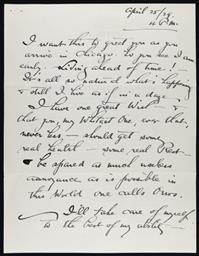 April 25/29.
6 P.M.
I want this to greet you as you
arrive in Chicago so you see I am
early. Living ahead of time!
It's all so natural what's happening
& still I live as if in a daze
I have one great Wish
that you, my Whitest One, over that,
never less — should get some
real health — some real Rest —
be spared as much useless
annoyance as is possible in
this World one calls Ours.
I'll take care of myself
to the best of my ability —